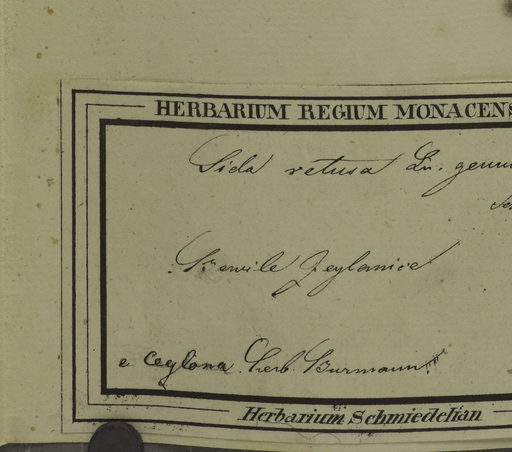 HERBARIUM REGIUM MONACENS
Sida retusa Lin. genu
Bewile Zeylanice
e Ceylona. Herb. Burmann.
Herbarium Schmiedelian